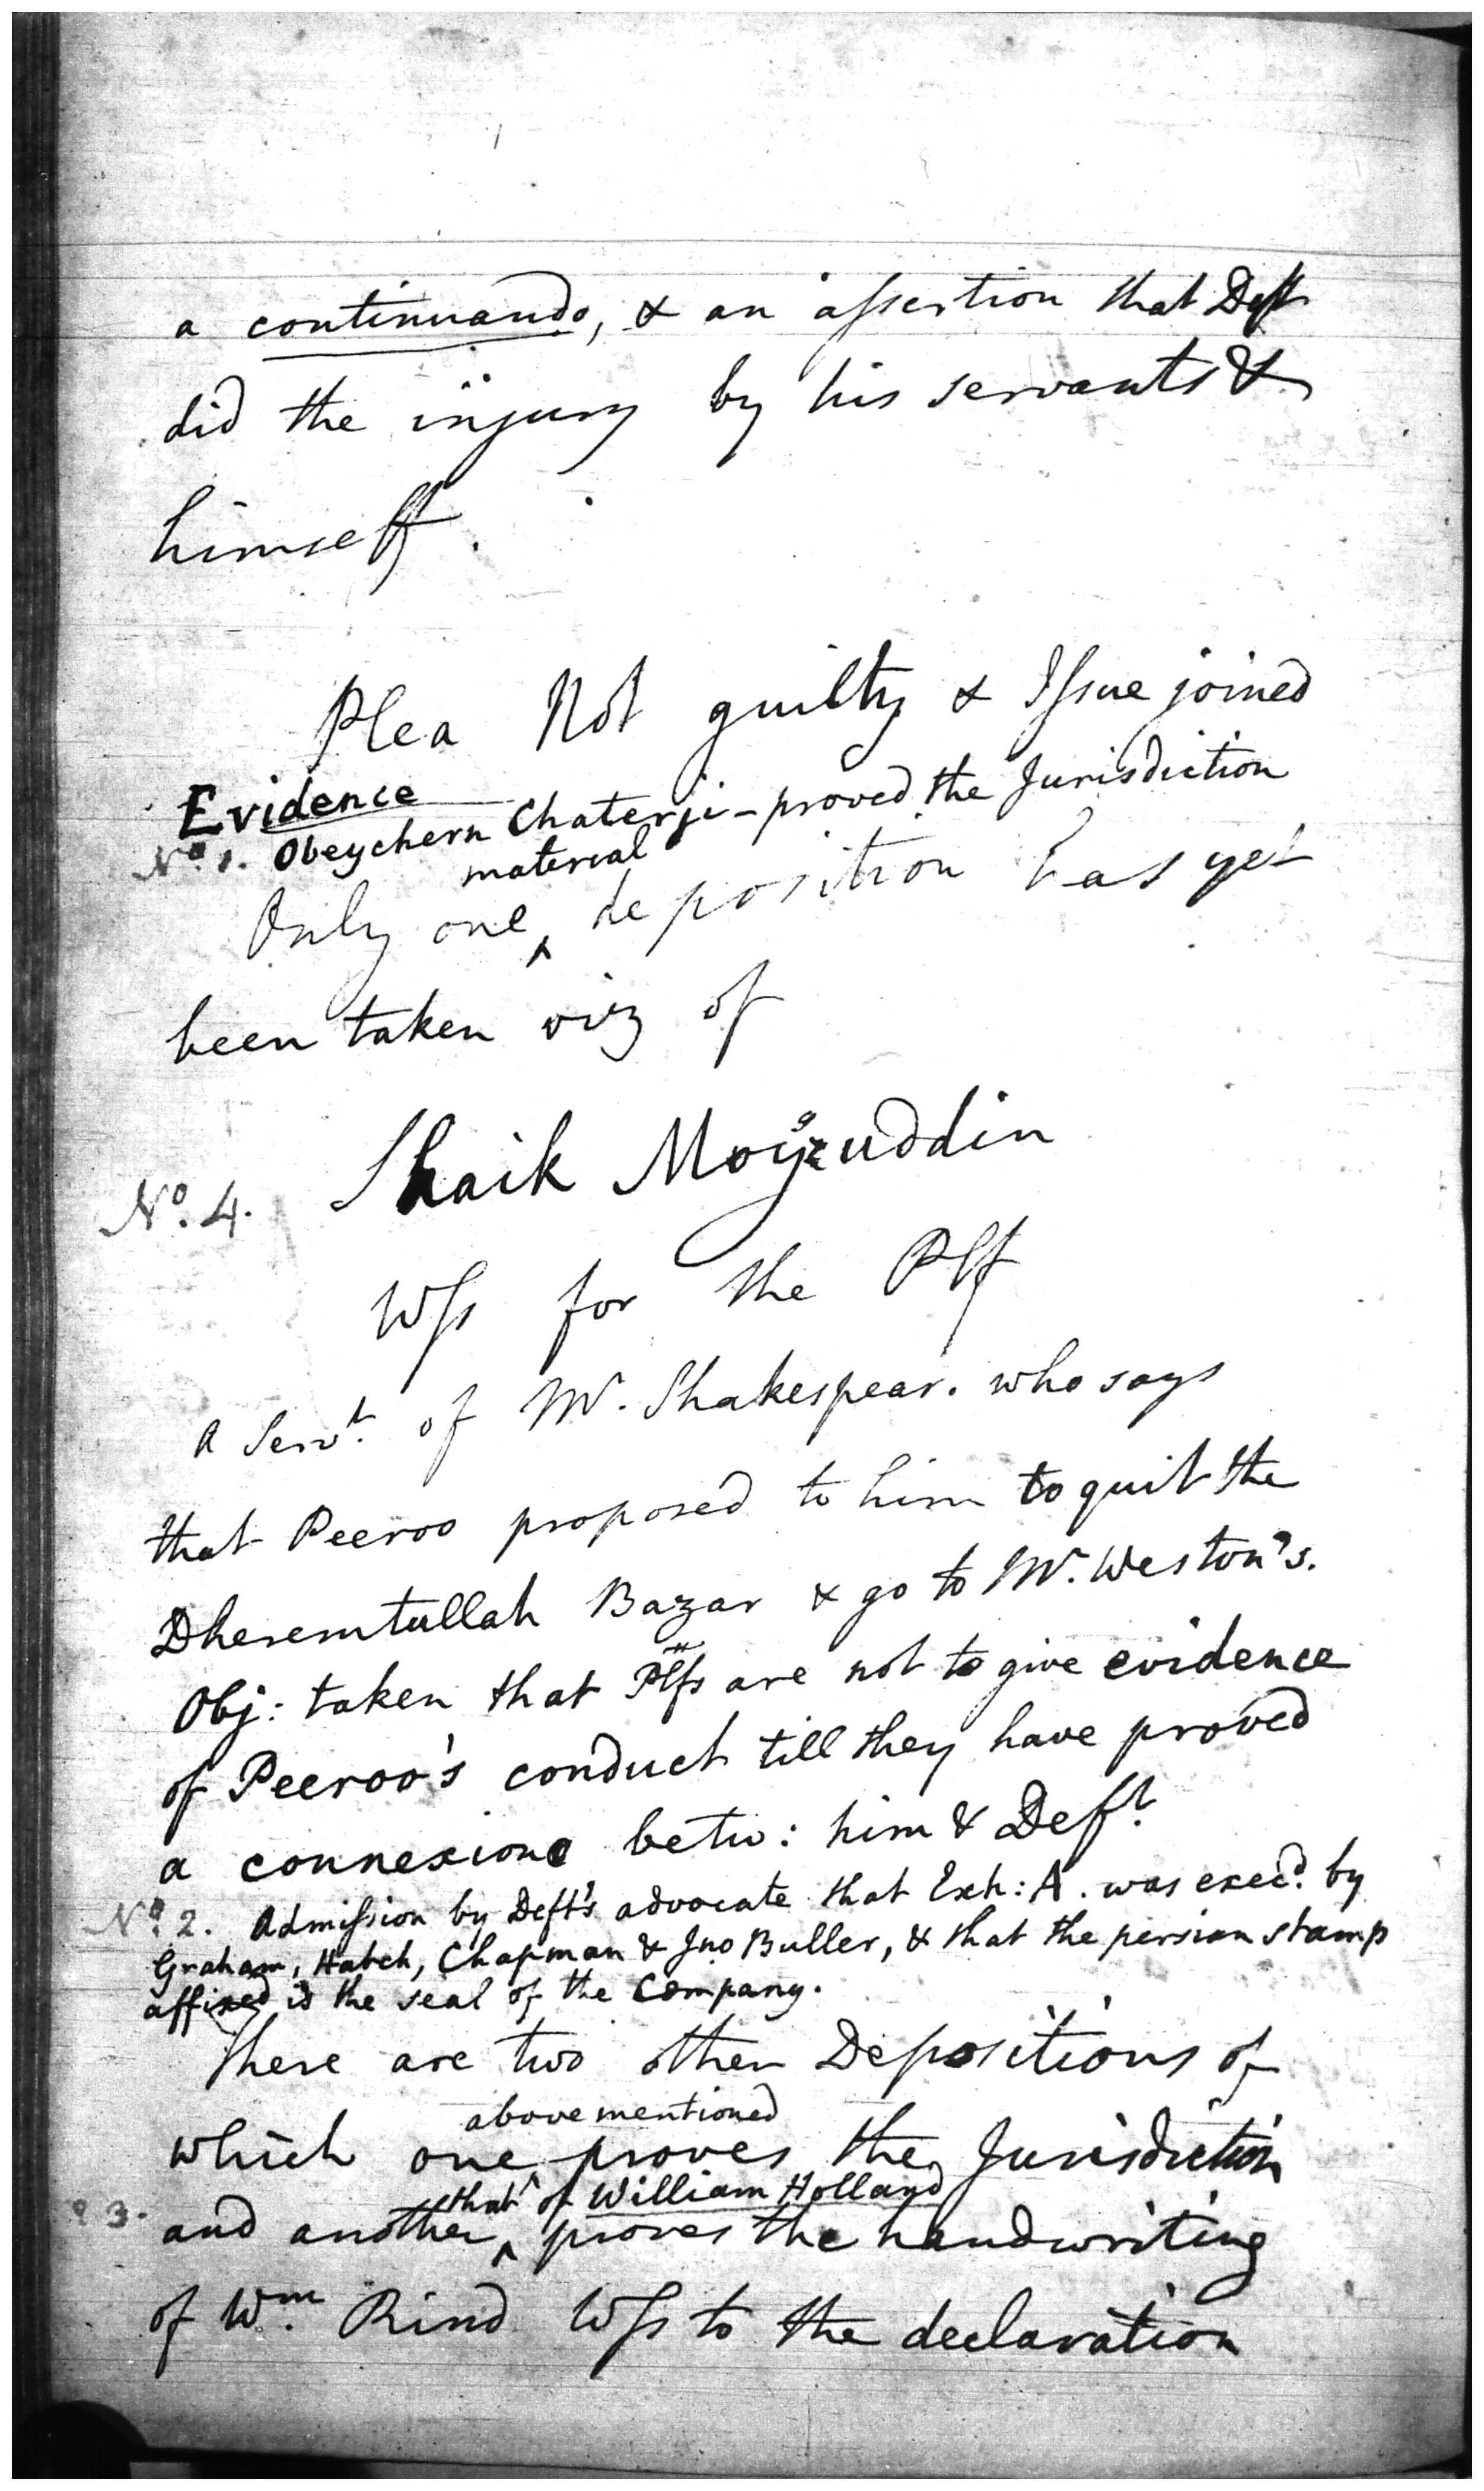 a continuando, & an assertion that Deft
did the injury by his servants &
himself.
Plea Not guilty & Issue joined
Evidence
No. 1. Obeychern Chaterji - proved the Jurisdiction
material
Only one deposition has yet
been taken viz of
No. 4. Shaik Moyzuddin
Wss for the Plf
a Servt. of Mr. Shakespear. who says
that Peeroo proposed to him to quit the
Dheremtullah Bazar & go to Mr. Weston's.
Obj: taken that Plfs are not to give evidence
of Peeroo's conduct till they have proved
a connexion betw: him & Deft.
No. 2. Admission by Deft's advocate that Exh: A. was execd. by
Graham, Hatch, Chapman & Jno Buller, & that the persian stamp
affixed is the seal of the Company.
There are two other Depositions of
above mentioned
which one proves the Jurisdiction
that of William Holland
3. and another proves the handwriting
of Wm. Rind Wss to the declaration